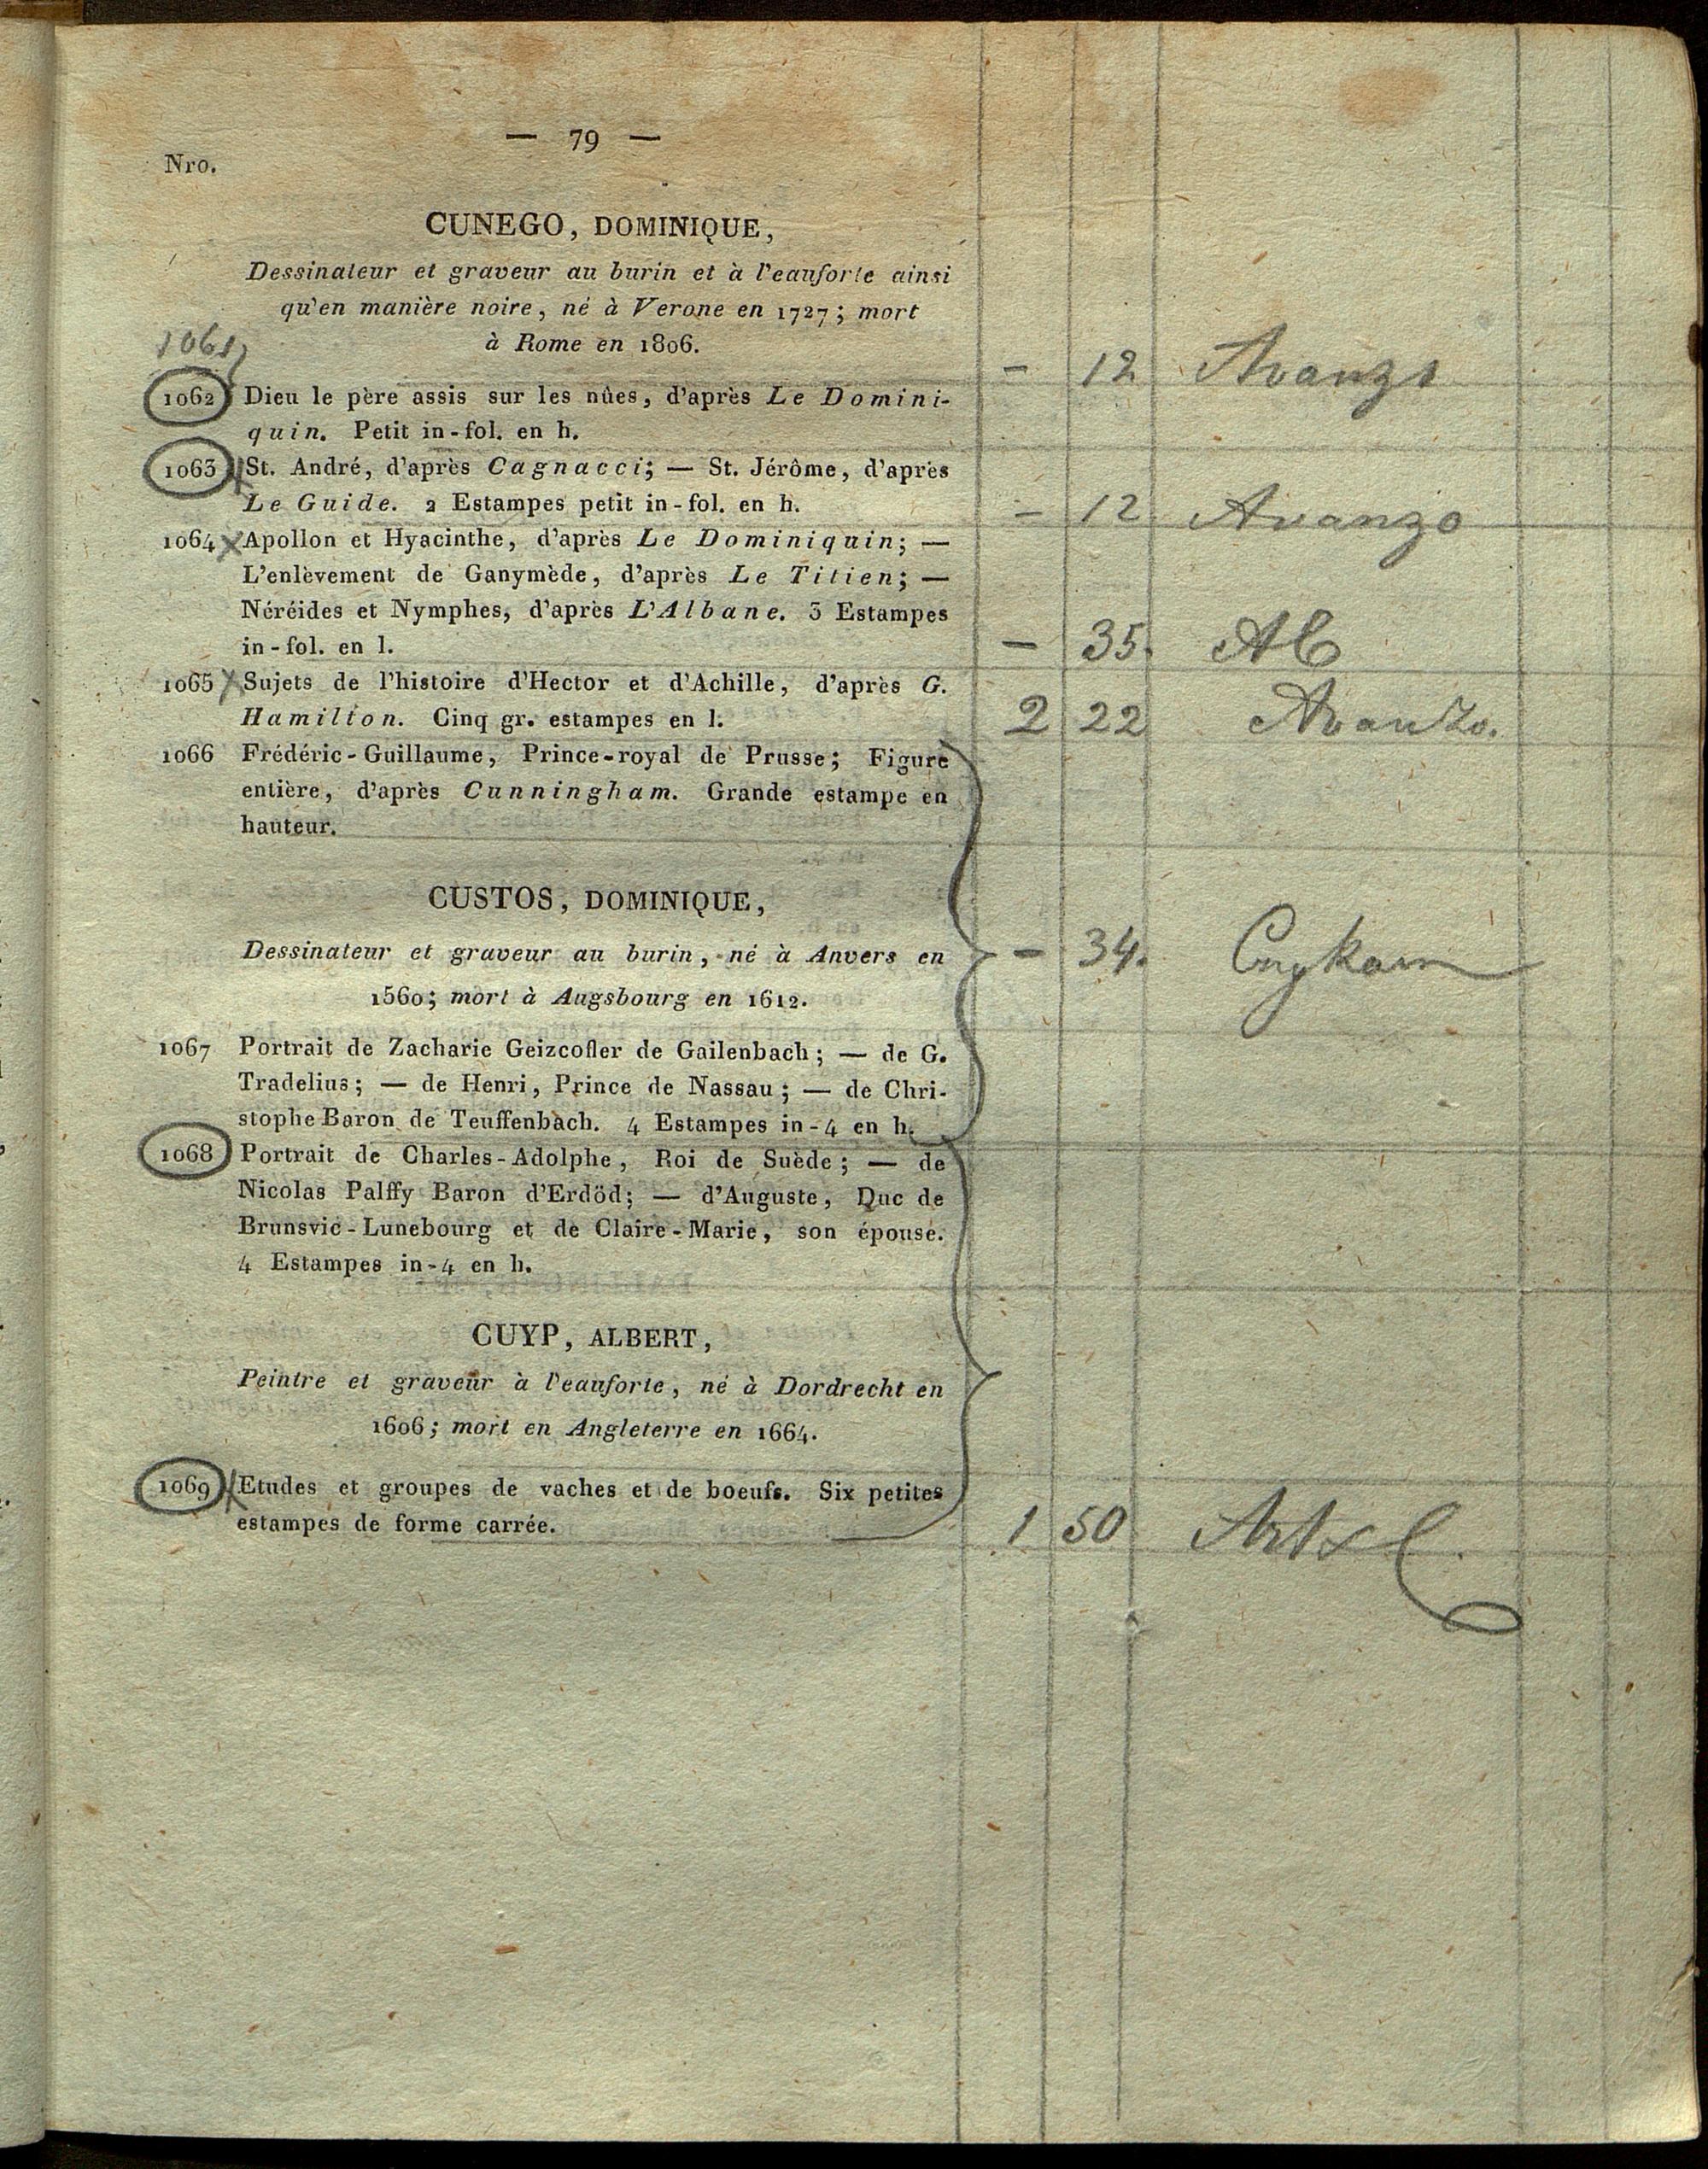 — 79 —
Nro.
CUNEGO, DOMINIQUE,
Dessinateur et graveur au burin et à l'eauforte ainsi
qu'en manière noire, né à Verone en 1727; mort
à Rome en 1806.
1061
1062 Dieu le père assis sur les nûes, d'après Le Domini-
quin. Petit in-fol. en h.
- 12 Avanzo
1063 St. André, d'après Cagnacci; — St. Jérôme, d'après
Le Guide. 2 Estampes petit in-fol. en h.
- 12 Avanzo
1064 Apollon et Hyacinthe, d'après Le Dominiquin; —
L'enlèvement de Ganymède, d'après Le Titien; —
Néréides et Nymphes, d'après L'Albane. 3 Estampes
in-fol. en l.
- 35.
1065 Sujets de l'histoire d'Hector et d'Achille, d'après G.
Hamilton. Cinq gr. estampes en l.
2 22 Avanzo.
1066 Frédéric-Guillaume, Prince-royal de Prusse; Figure
entière, d'après Cunningham. Grande estampe en
hauteur.
CUSTOS, DOMINIQUE,
Dessinateur et graveur au burin, né à Anvers en
1560; mort à Augsbourg en 1612.
- 34.
1067 Portrait de Zacharie Geizcofler de Gailenbach; — de G.
Tradelius; — de Henri, Prince de Nassau; — de Chri-
stophe Baron de Teuffenbach. 4 Estampes in-4 en h.
1068 Portrait de Charles-Adolphe, Roi de Suède; — de
Nicolas Palffy Baron d'Erdöd; — d'Auguste, Duc de
Brunsvic-Lunebourg et de Claire-Marie, son épouse.
4 Estampes in-4 en h.
CUYP, ALBERT,
Peintre et graveur à l'eauforte, né à Dordrecht en
1606; mort en Angleterre en 1664.
1069 Etudes et groupes de vaches et de boeufs. Six petites
estampes de forme carrée.
1 50